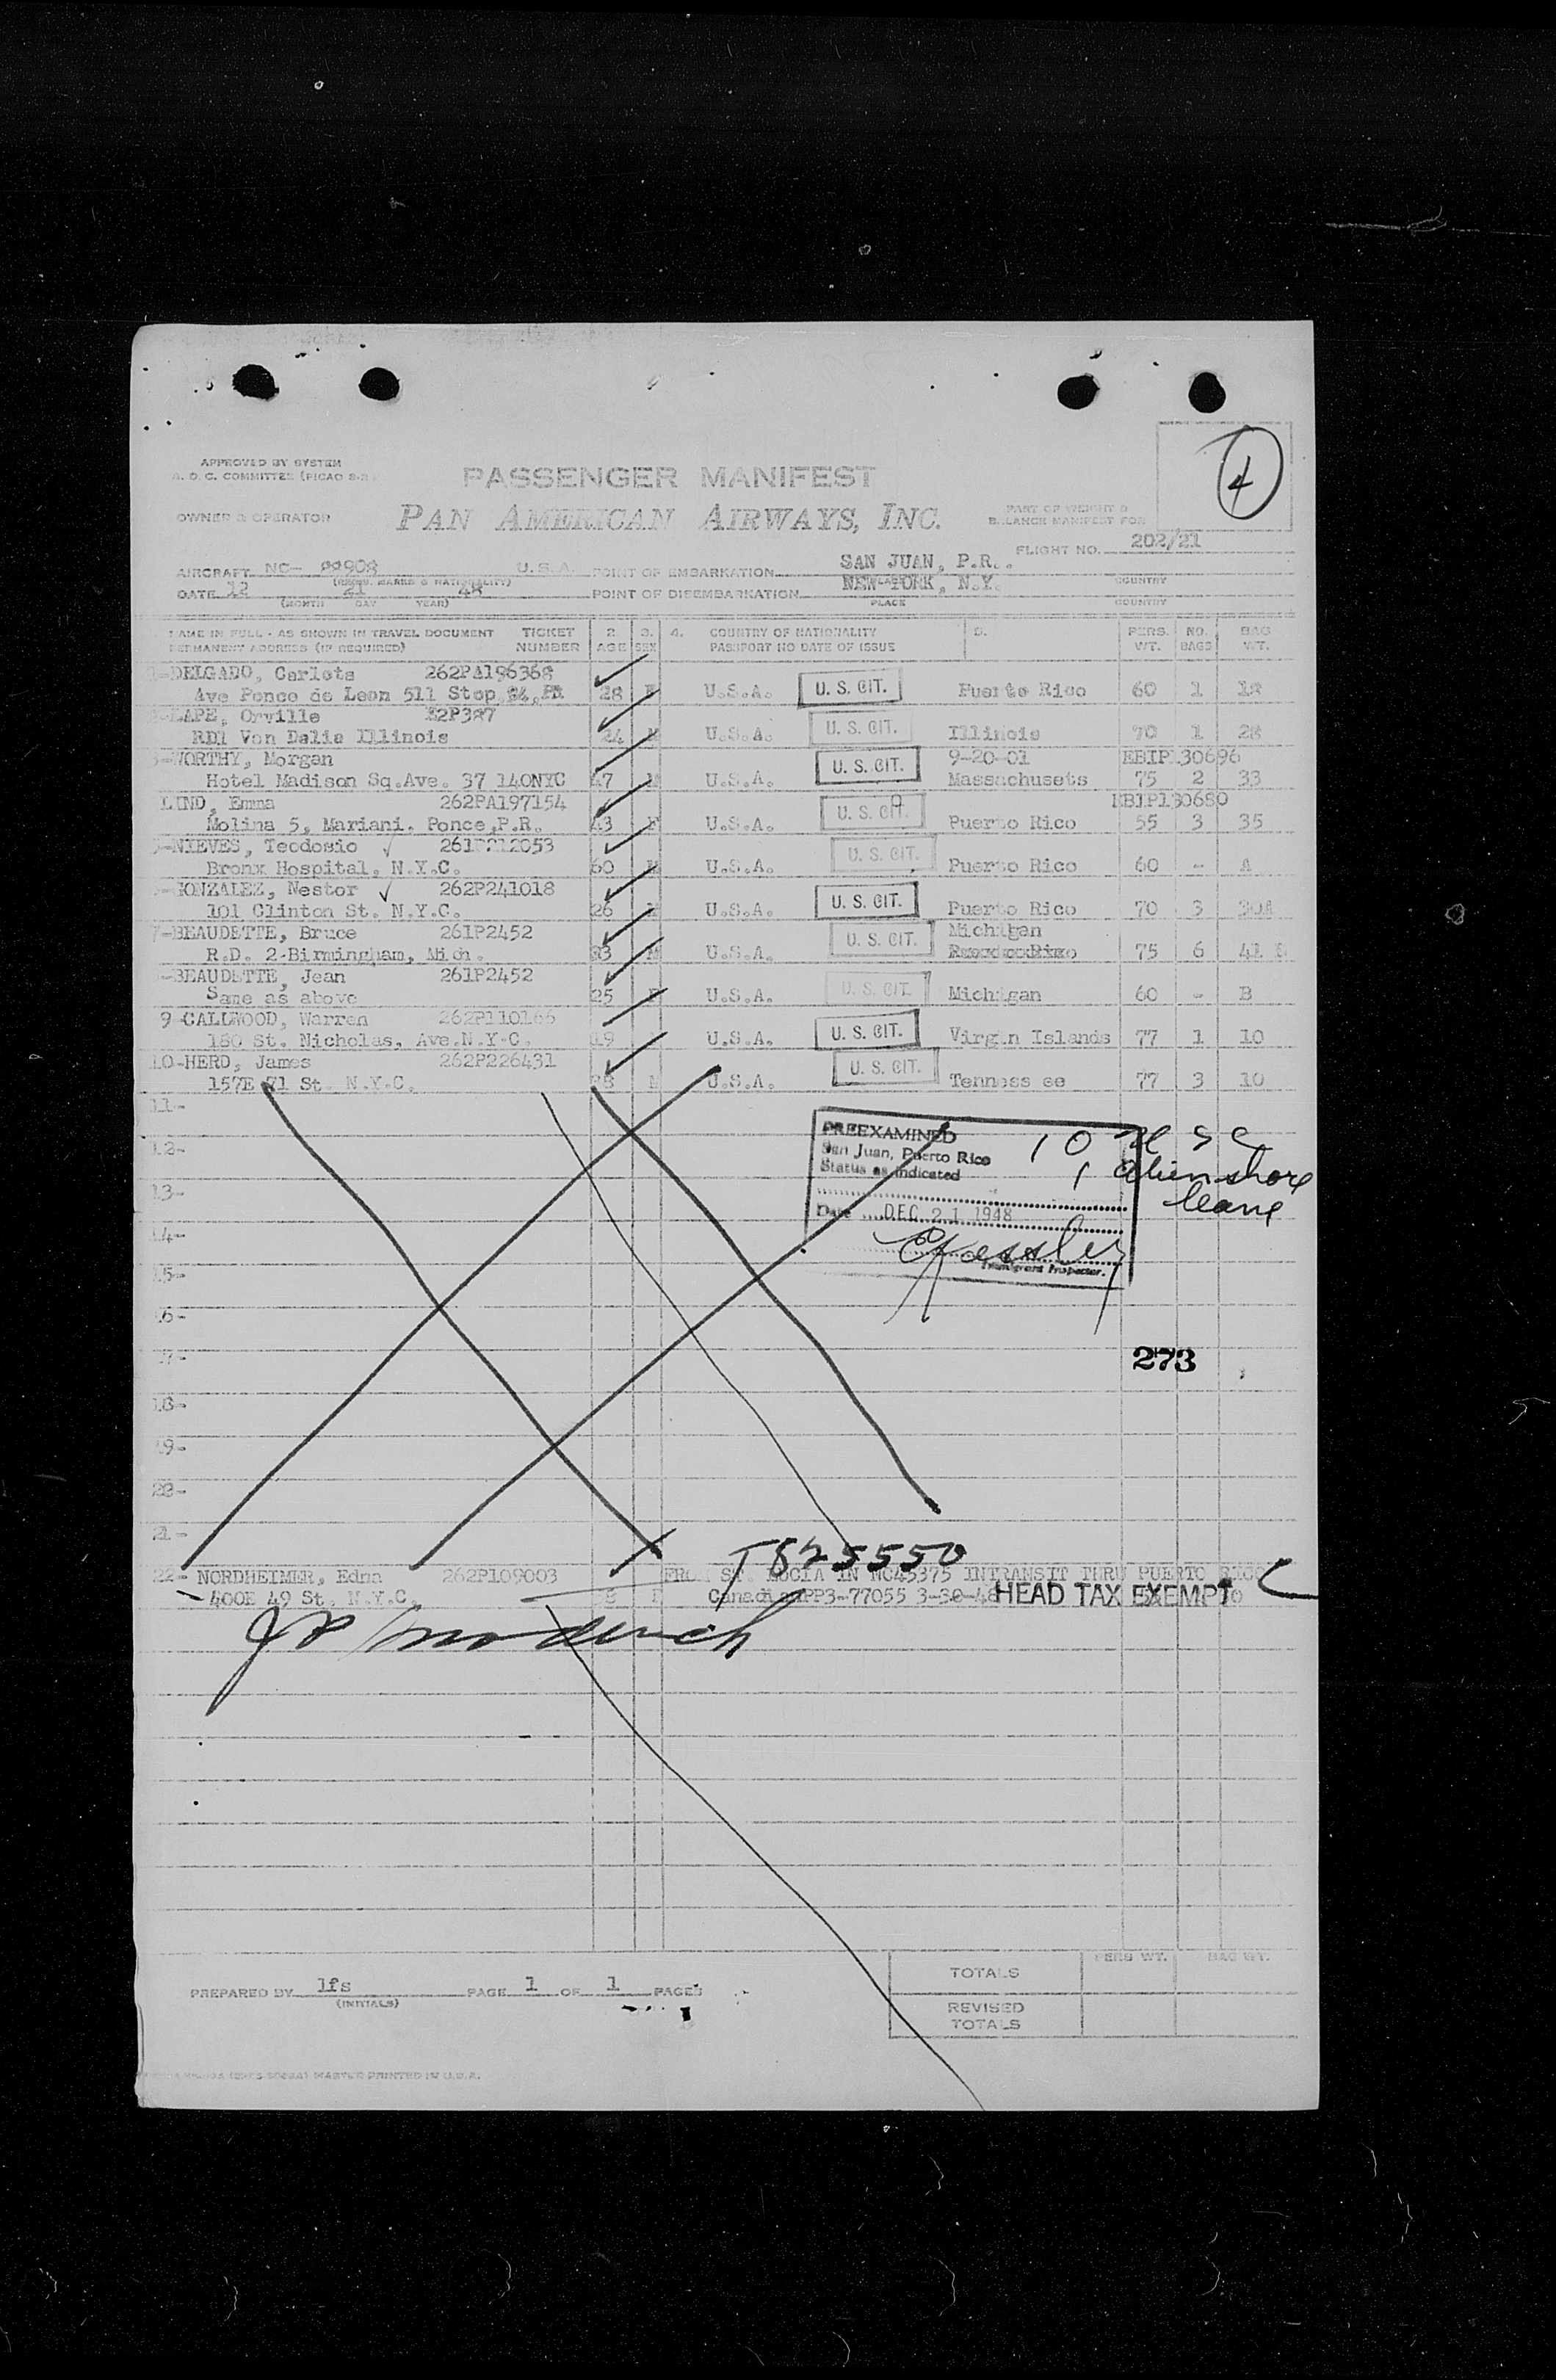 APPROVED BY SYSTEM
A. O. C. COMMITTEE (PICAO S-R)
PASSENGER MANIFEST
4
OWNER & OPERATOR PAN AMERICAN AIRWAYS, INC.
PART OF WEIGHT &
BALANCE MANIFEST FOR
FLIGHT NO. 202/21
AIRCRAFT NC- 88908 U.S.A. POINT OF EMBARKATION SAN JUAN, P.R.
DATE 12 21 48 POINT OF DISEMBARKATION NEW YORK, N.Y.
(MONTH DAY YEAR) PLACE COUNTRY
NAME IN FULL - AS SHOWN IN TRAVEL DOCUMENT TICKET 2. 3. 4. COUNTRY OF NATIONALITY 5. PERS. NO. BAG
PERMANENT ADDRESS (IF REQUIRED) NUMBER AGE SEX PASSPORT NO DATE OF ISSUE WT. BAGS WT.
DELGADO, Carlota 262PA196368
Ave Ponce de Leon 511 Stop 28 F U.S.A. U. S. CIT. Puerto Rico 60 1 18
LAPE, Orville
RD1 Von Dalia Illinois 24 M U.S.A. U. S. CIT. Illinois 70 1 28
WORTHY, Morgan 9-20-01 EBIP130696
Hotel Madison Sq.Ave. 37 140NYC 47 M U.S.A. U. S. CIT. Massachusets 75 2 33
LIND, Emma 262PA197154 EBIP130680
Molina 5, Mariani. Ponce,P.R. 43 F U.S.A. U. S. CIT. Puerto Rico 55 3 35
NIEVES, Teodosio
Bronx Hospital, N.Y.C. 60 M U.S.A. U. S. CIT. Puerto Rico 60 - A
GONZALEZ, Nestor 262P241018
101 Clinton St. N.Y.C. 26 M U.S.A. U. S. CIT. Puerto Rico 70 3 30A
7-BEAUDETTE, Bruce 261P2452 Michigan
R.D. 2-Birmingham, Mich. M U.S.A. U. S. CIT. 75 6 41
BEAUDETTE, Jean 261P2452
Same as above 25 F U.S.A. U. S. CIT. Michigan 60 - B
9-CALLWOOD, Warren 262P110166
180 St. Nicholas, Ave.N.Y.C. 19 U.S.A. U. S. CIT. Virgin Islands 77 1 10
10-HERD, James 262P226431
157E 71 St. N.Y.C. M U.S.A. U. S. CIT. Tennessee 77 3 10
11-
12-
13-
14-
15-
16-
17-
18-
19-
20-
21-
PREEXAMINED
San Juan, Puerto Rico
Status as indicated
Date DEC 21 1948
Immigrant Inspector.
10 USC
1 alien shore
leave
273
T825550
22- NORDHEIMER, Edna 262P109003 FROM ST. LUCIA IN NC45375 INTRANSIT THRU PUERTO RICO
400E 49 St. N.Y.C. F Canadian PP3-77055 3-30-48 HEAD TAX EXEMPT
PREPARED BY lfs PAGE 1 OF 1 PAGES
(INITIALS)
PERS WT. BAG WT.
TOTALS
REVISED
TOTALS
MASTER PRINTED IN U.S.A.